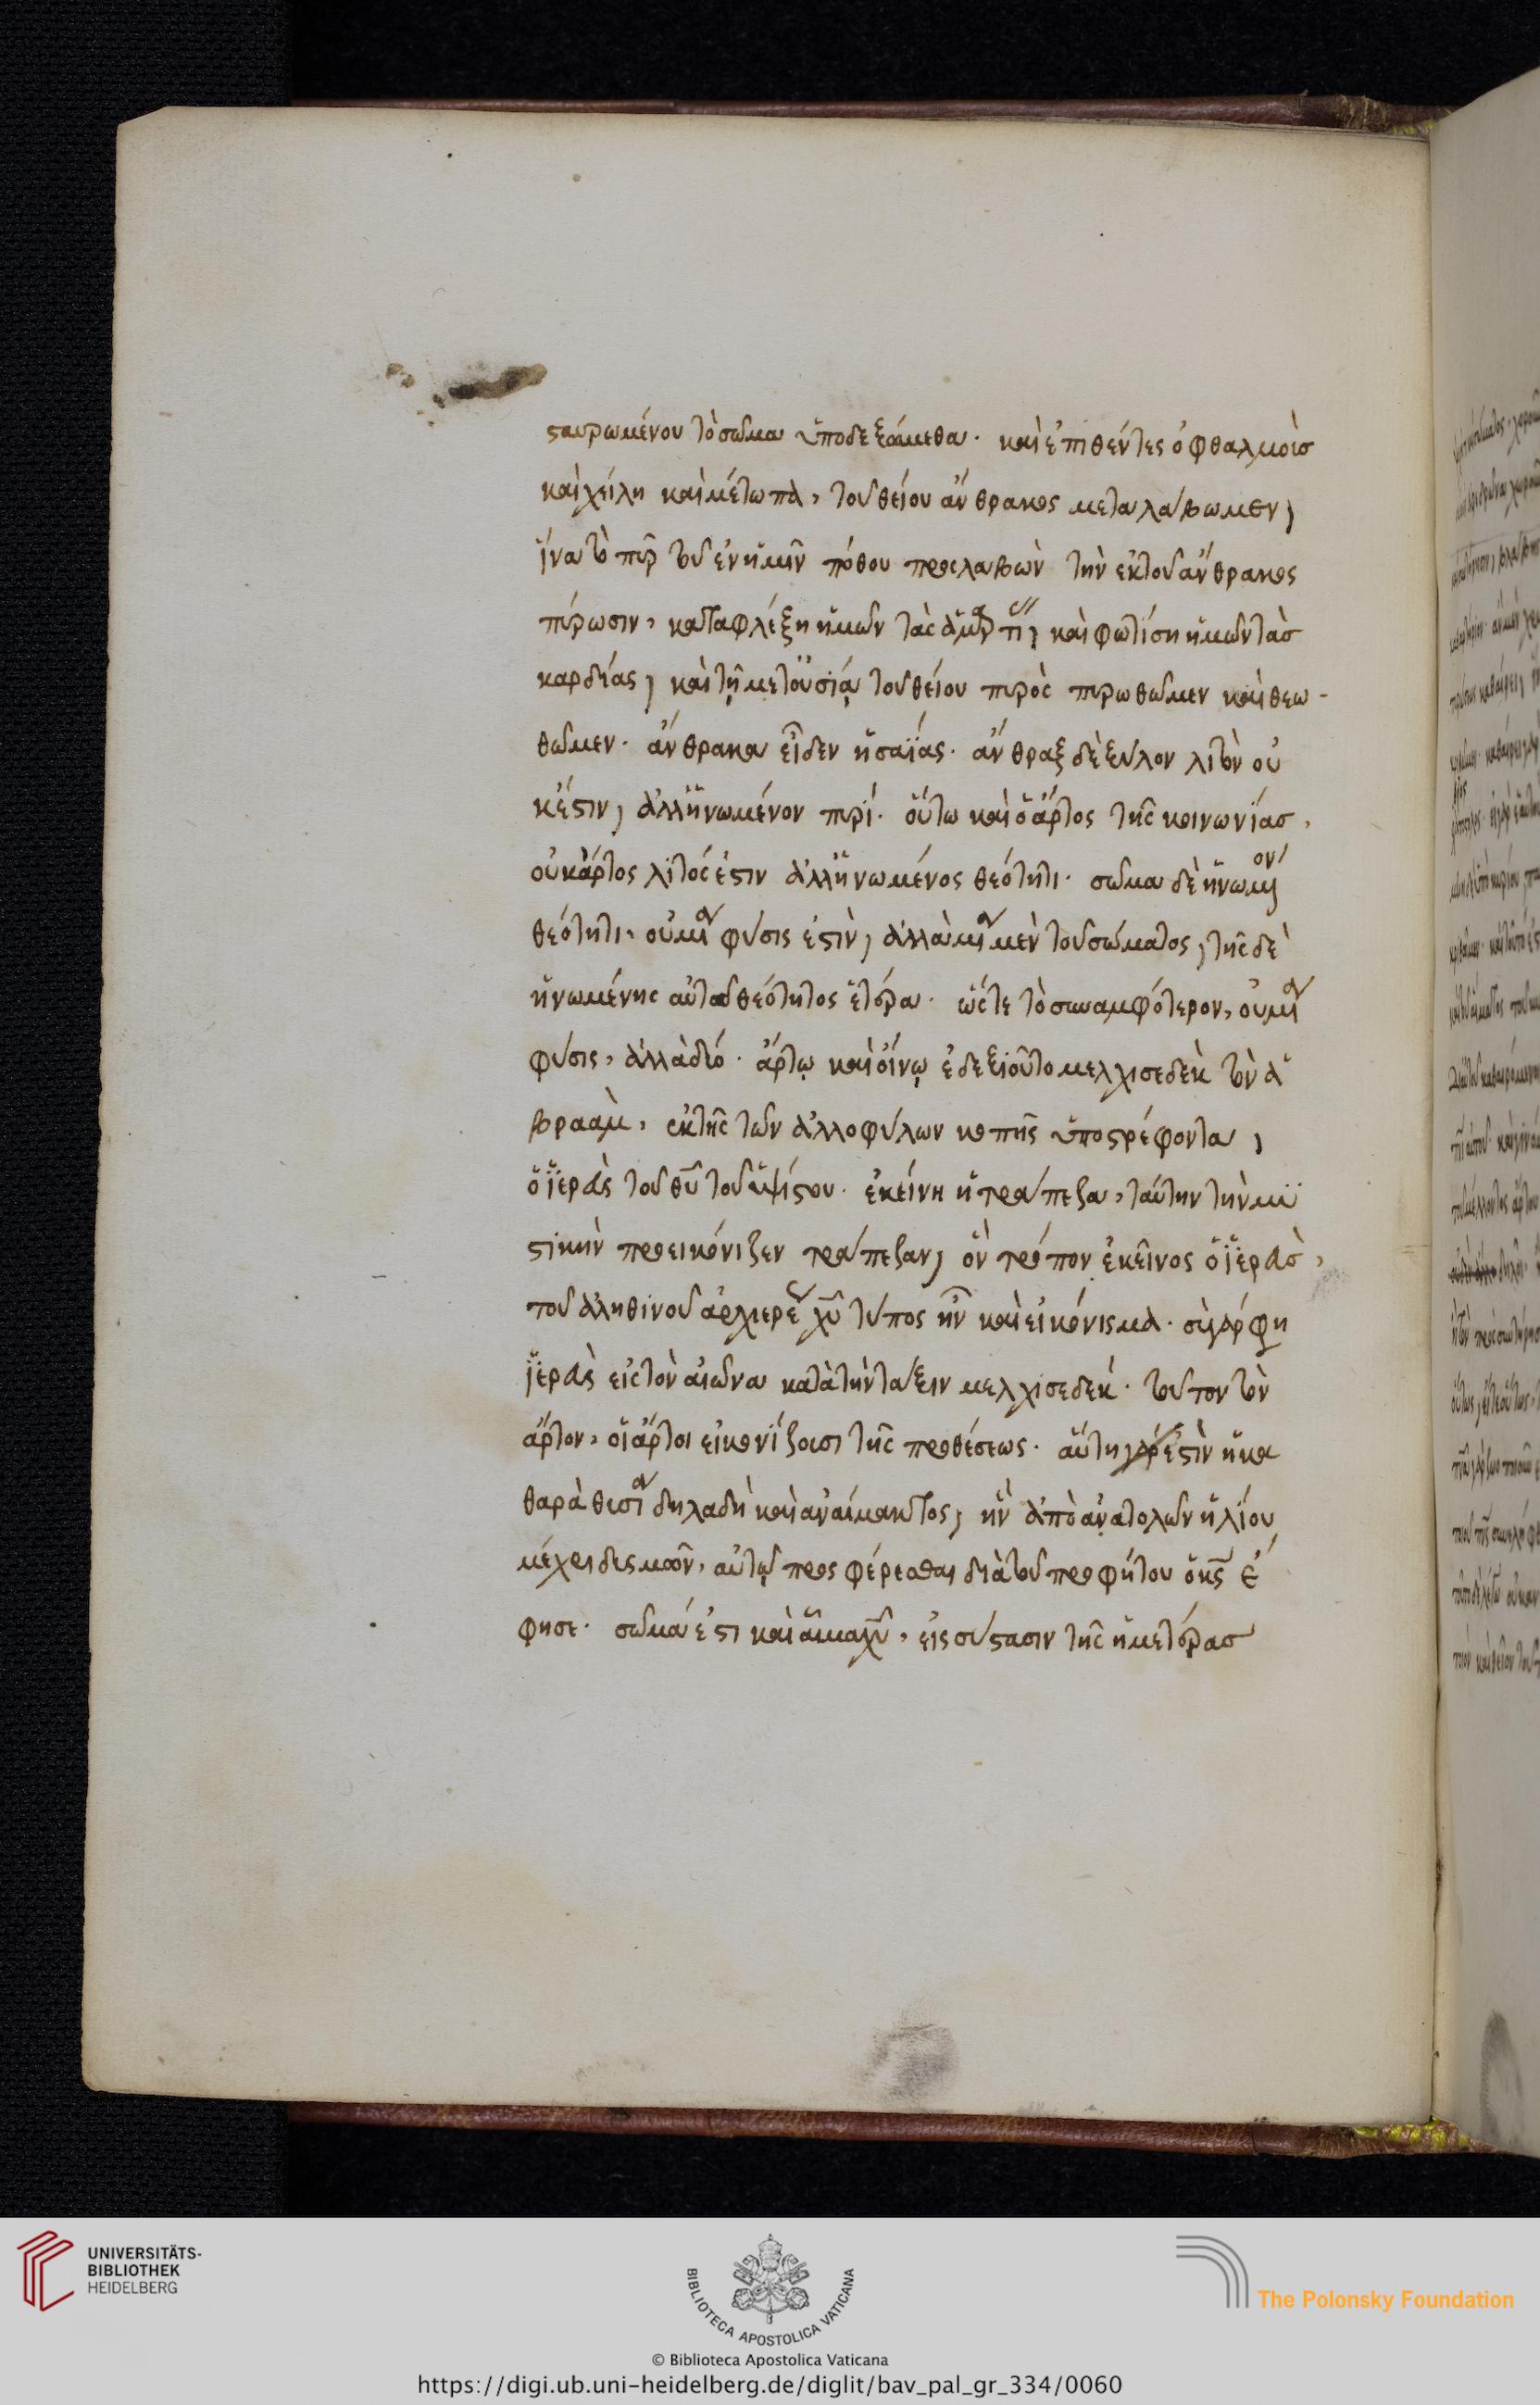 ϛαυρωμένου τὸ σῶμα ὑποδεξώμεθα· καὶ ἐπιθέντες ὀφθαλμοῖσ
καὶ χείλη καὶ μέτωπα, τοῦ θείου ἄνθρακος μεταλάβωμεν,
ἵνα τὸ πῦρ τοῦ ἐν ἡμῖν πόθου προσλαβὼν τὴν ἐκ τοῦ ἄνθρακος
πύρωσιν, καταφλέξη ἡμῶν τὰς ἁμρτι, καὶ φωτίση ἡμῶν τὰσ
καρδίας, καὶ τῇ μετουσίᾳ τοῦ θείου πυρὸς πυρωθῶμεν καὶ θεω-
θῶμεν· ἄνθρακα εἶδεν ἡσαΐας· ἄνθραξ δὲ ξύλον λιτὸν οὐ
κέϛιν, ἀλλ' ἡνωμένον πυρί· οὕτω καὶ ὁ ἄρτος τῆς κοινωνίασ,
οὐκ ἄρτος λιτός ἐϛιν ἀλλ' ἡνωμένος θεότητι· σῶμα δὲ ἡνωμον
θεότητι, οὐ μία φύσις ἐϛὶν, ἀλλὰ μία μὲν τοῦ σώματος, τῆς δὲ
ἡνωμένης αὐτῶ θεότητος ἑτέρα· ὥςτε τὸ συναμφότερον, οὐ μία
φύσις, ἀλλὰ δύο· ἄρτῳ καὶ οἴνῳ ἐδεξιοῦτο μελχισεδὲκ τὸν ἀ
βραὰμ, ἐκ τῆς τῶν ἀλλοφύλων κοπῆς ὑποϛρέφοντα,
ὁ ἱερεὺς τοῦ θῦ τοῦ ὑψίϛου· ἐκείνη ἡ τράπεζα, ταύτην τὴν μυ
ϛικὴν προεικόνιζεν τράπεζαν, ὃν τρόπον ἐκεῖνος ὁ ἱερεὺσ,
τοῦ ἀληθινοῦ ἀρχιερέ χῦ τύπος ἦν καὶ εἰκόνισμα· σὺ γάρ φη
ἱερεὺς εἰς τὸν αἰῶνα κατὰ τὴν τάξιν μελχισεδέκ· τοῦτον τὸν
ἄρτον, οἱ ἄρτοι εἰκονίζουσι τῆς προθέσεως· αὕτη γάρ ἐϛὶν ἡ κα
θαρὰ θυσία δηλαδὴ καὶ ἀναίμακτος, ἣν ἀπὸ ἀνατολῶν ἡλίου
μέχρι δυσμῶν, αὐτῷ προσφέρεσθαι διὰ τοῦ προφήτου ὁ κς ἔ
φησε· σῶμά ἐϛι καὶ αἷμα χῦ, εἰς σύϛασιν τῆς ἡμετέρασ
UNIVERSITÄTS-
BIBLIOTHEK
HEIDELBERG
BIBLIOTECA APOSTOLICA VATICANA
The Polonsky Foundation
© Biblioteca Apostolica Vaticana
https://digi.ub.uni-heidelberg.de/diglit/bav_pal_gr_334/0060